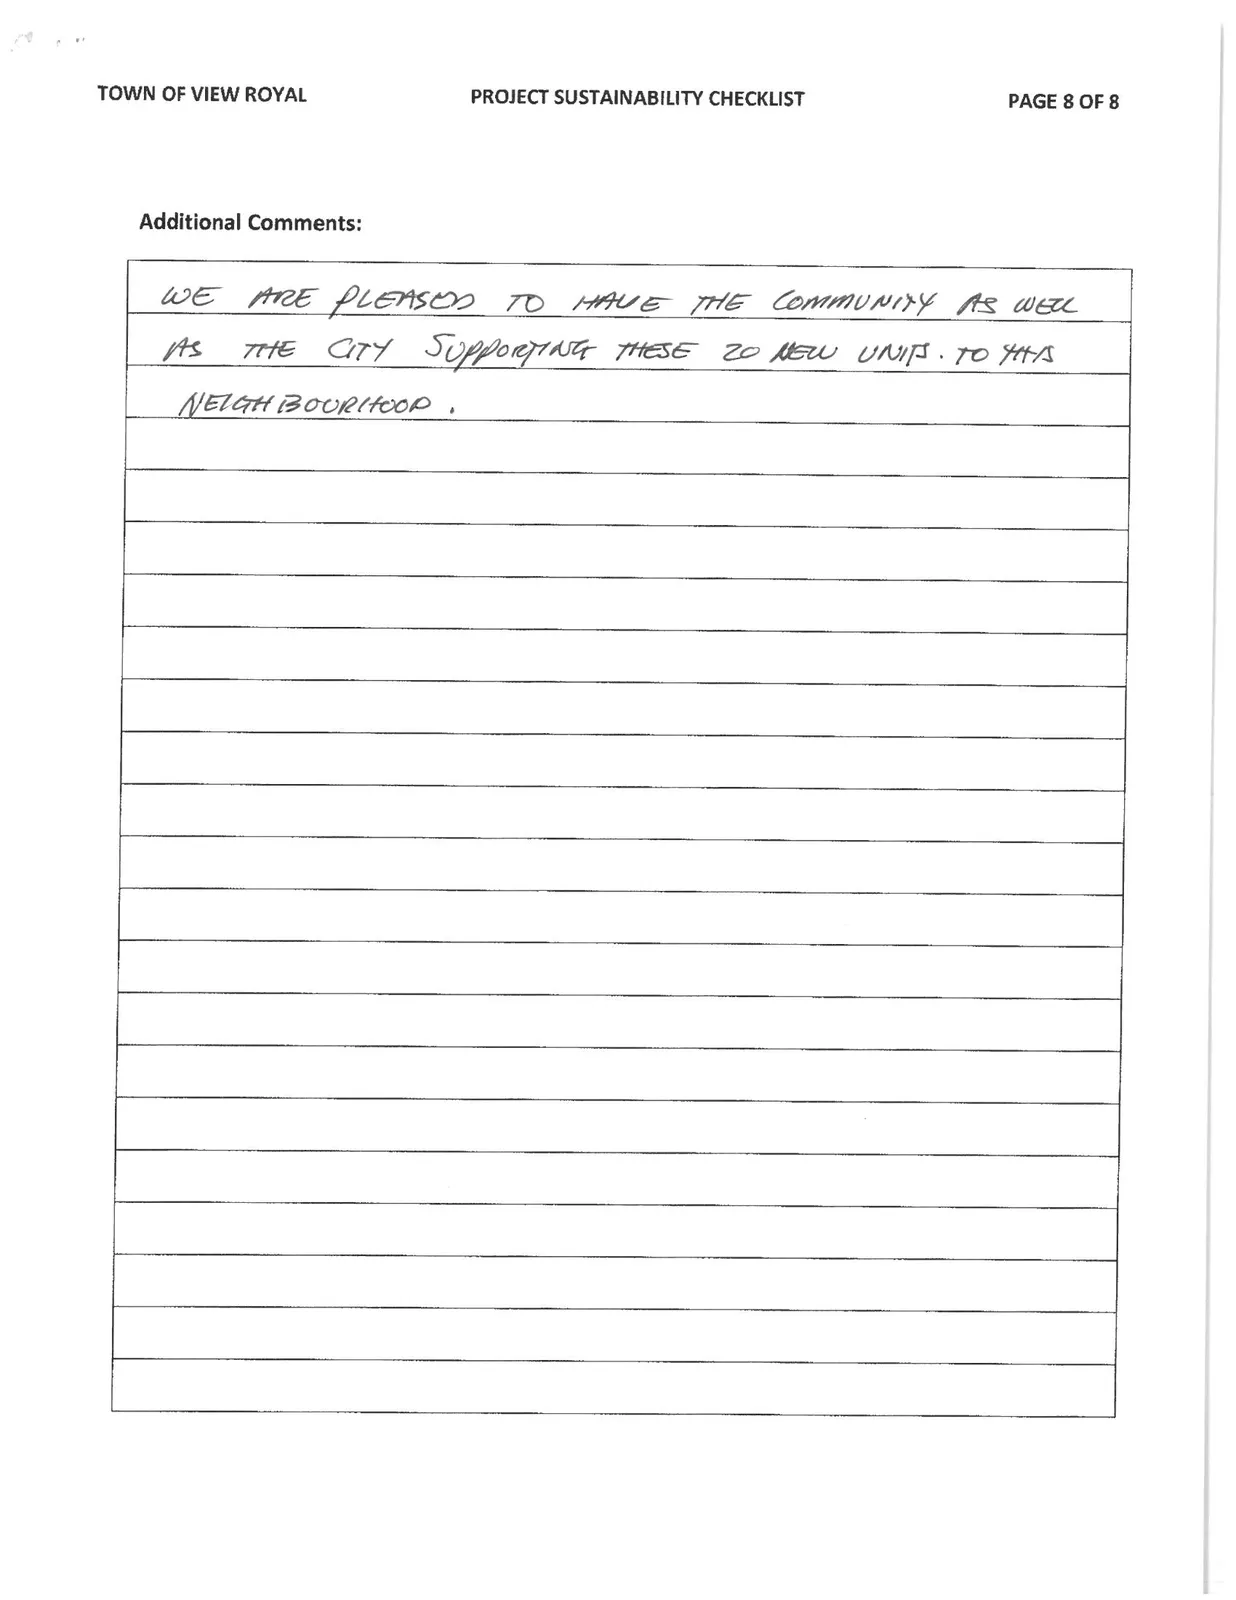 TOWN OF VIEW ROYAL PROJECT SUSTAINABILITY CHECKLIST PAGE 8 OF 8
Additional Comments:
WE ARE PLEASED TO HAVE THE COMMUNITY AS WELL
AS THE CITY SUPPORTING THESE 20 NEW UNITS. TO THIS
NEIGHBOURHOOD.